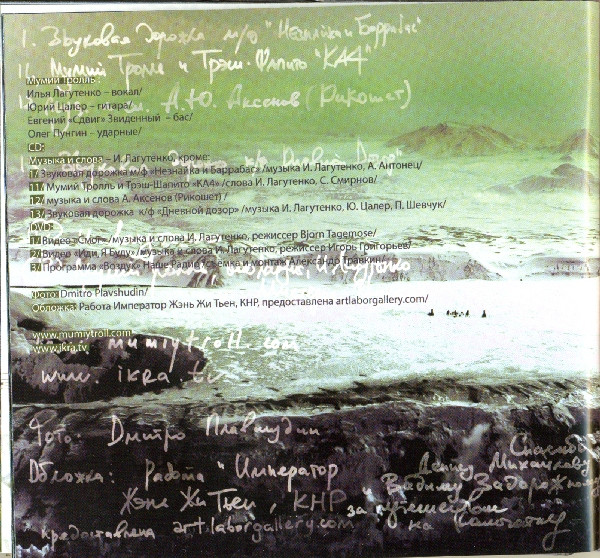 1. Звуковая дорожка м/ф "Незнайка и Баррабас"
11. Мумий Тролль и Трэш-Шапито "КА4"
А.Ю. Аксенов (Рикошет)
Мумий Тролль:
Илья Лагутенко – вокал/
Юрий Цалер – гитара/
Евгений «Сдвиг» Звиденный – бас/
Олег Пунгин – ударные/
CD:
Музыка и слова – И. Лагутенко, кроме:
1/ Звуковая дорожка м/ф «Незнайка и Баррабас» /музыка И. Лагутенко, А. Антонец/
11/ Мумий Тролль и Трэш-Шапито «КА4» /слова И. Лагутенко, С. Смирнов/
12/ музыка и слова А. Аксенов (Рикошет) /
13/ Звуковая дорожка к/ф «Дневной дозор» /музыка И. Лагутенко, Ю. Цалер, П. Шевчук/
DVD:
1/ Видео «Смог» /музыка и слова И. Лагутенко, режиссер Bjorn Tagemose/
2/ Видео «Иди, Я Буду» /музыка и слова И. Лагутенко, режиссер Игорь Григорьев/
3/ Программа «Воздух» Наше Радио /съёмка и монтаж Александр Травкин/
Фото Dmitro Plavshudin/
Обложка: Работа Император Жэнь Жи Тьен, КНР, предоставлена artlaborgallery.com/
www.mumiytroll.com
www.ikra.tv
mumiytroll.com
www. ikra.tv
Фото: Дмитро Плавшудин
Обложка: работа "Император
Жэнь Жи Тьен, КНР
предоставлена art.laborgallery.com
Спасибо
Денису Михайлову
Вадиму Задорожному
за путешествие
на Камчатку